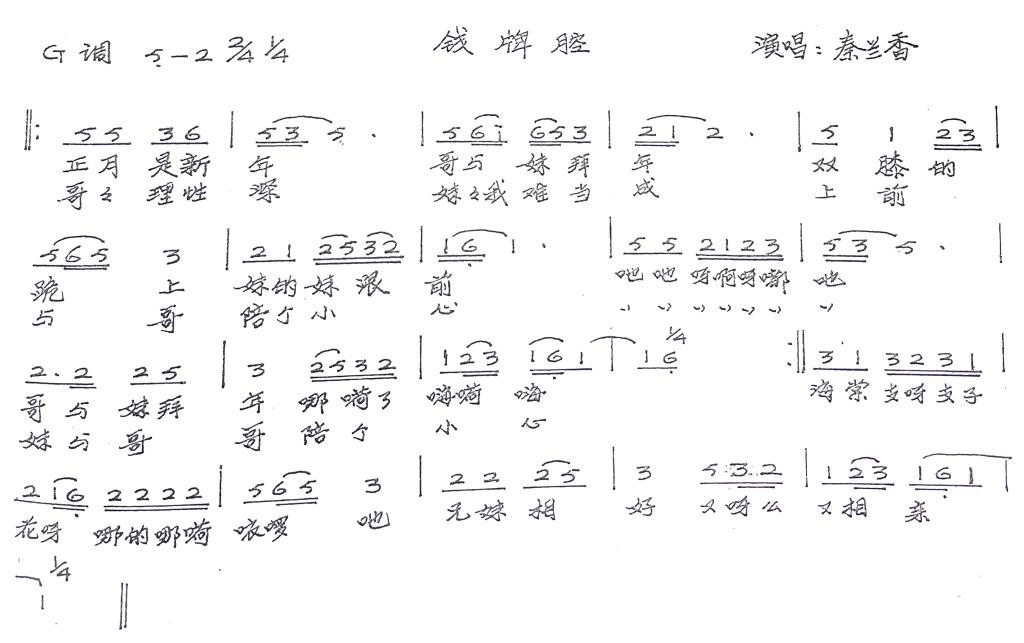 G调 5-2 2/4 1/4 钱牌腔 演唱:秦兰香
‖: 55 36 | 53 5 · | 56i 653 | 21 2 · | 5 1 23 |
正月 是新 年 哥与 妹拜 年 双 膝 的
哥々 理性 深 妹々我 难当 成 上 前
565 3 | 21 2532 | 16 1 · | 55 2123 | 53 5 · |
跪 上 妹的 妹 浪 前 吔吔 呀啊呀嘟 吔
与 哥 陪个 小 心 〃 〃 〃 〃 〃 〃 〃
2·2 25 | 3 2532 | 123 161 | 1/4 16 :‖ 31 3231 |
哥与 妹拜 年 哪嗬了 嗨嗬 嗨 海棠 支呀支子
妹与 哥 哥 陪个 小 心
216 2222 | 565 3 | 22 25 | 3 532 | 123 161 |
花呀 哪的哪嗬 咳啰 吔 兄妹 相 好 又呀么 又相 亲
1/4 1 ‖